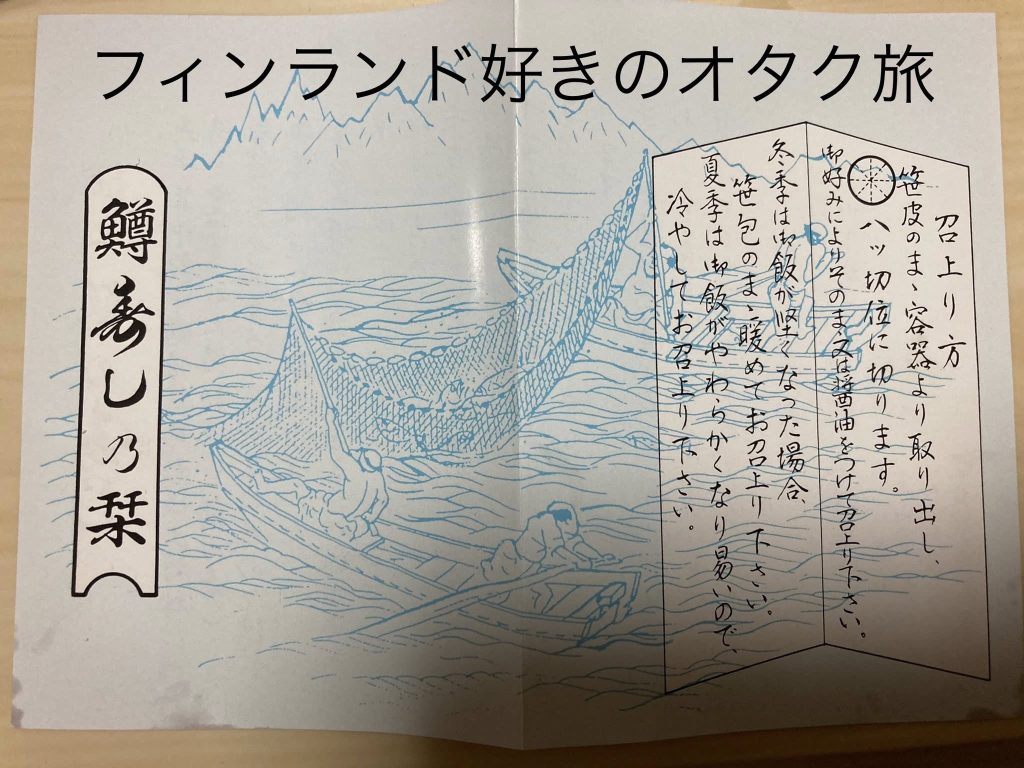 フィンランド好きのオタク旅
召上り方
笹皮のまゝ容器より取り出し、
八ッ切位に切ります。
御好みによりそのまゝ又は醤油をつけて召上り下さい。
冬季は御飯が堅くなった場合、
笹包のまゝ暖めてお召上り下さい。
夏季は御飯がやわらかくなり易いので、
冷やしてお召上り下さい。
鱒寿し乃栞